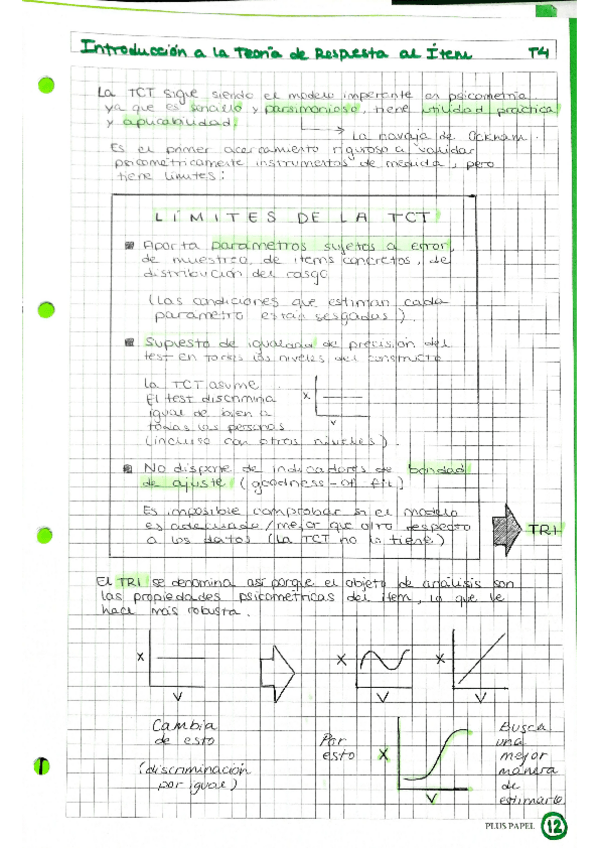 Introducción a la Teoría de Respuesta al Ítem T4
La TCT sigue siendo el modelo imperante en psicometría
ya que es sencillo y parsimonioso, tiene utilidad práctica
y aplicabilidad.
La navaja de Ockham.
Es el primer acercamiento riguroso a validar
psicométricamente instrumentos de medida, pero
tiene límites:
LÍMITES DE LA TCT
Aporta parámetros sujetos a error,
de muestreo, de ítems concretos, de
distribución del rasgo
(Las condiciones que estiman cada
parámetro están sesgados).
Supuesto de igualdad de precisión del
test en todos los niveles del constructo
La TCT asume
El test discrimina
igual de bien a
todas las personas
(incluso con otros niveles).
X
V
No dispone de indicadores de bondad
de ajuste (goodness-of fit)
Es imposible comprobar si el modelo
es adecuado/mejor que otro respecto
a los datos (La TCT no la tiene)
TRI
El TRI se denomina así porque el objeto de análisis son
las propiedades psicométricas del ítem, lo que le
hace más robusta.
X
V
X
V
X
V
Cambia
de esto
(discriminación
por igual)
Por
esto
X
V
Busca
una
mejor
manera
de
estimarlo
PLUS PAPEL 12